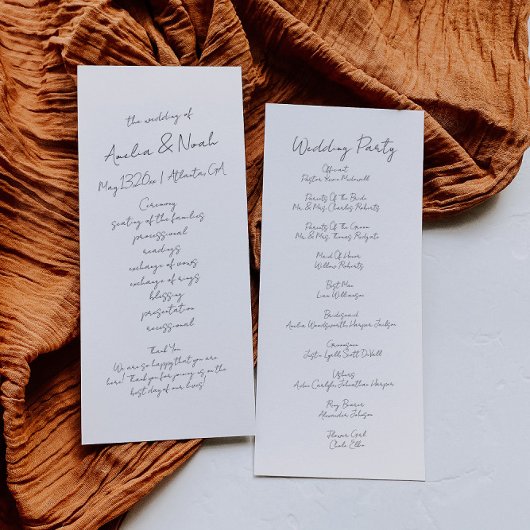 the wedding of
Amelia & Noah
May 13.20xx | Atlanta, GA
Ceremony
seating of the families
processional
readings
exchange of vows
exchange of rings
blessing
presentation
recessional
Thank You
We are so happy that you are
here! Thank you for joining us on the
best day of our lives!
Wedding Party
Officiant
Pastor
Parents Of the Bride
Mr. & Mrs. Charles Roberts
Parents Of the Groom
Mr. & Mrs. Thomas
Maid Of Honor
Willow Roberts
Best Man
Liam Williamson
Bridesmaid
Amelia Woodsworth, Harper Jackson
Groomsmen
Justin Lyle, Scott DeVall
Ushers
Aiden Carlyle, Johnathan Harper
Ring Bearer
Alexander Johnson
Flower Girl